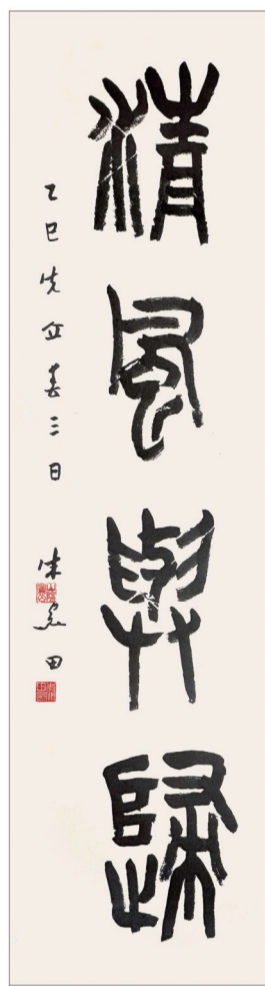 清風與歸
乙巳先立春三日 朱君田